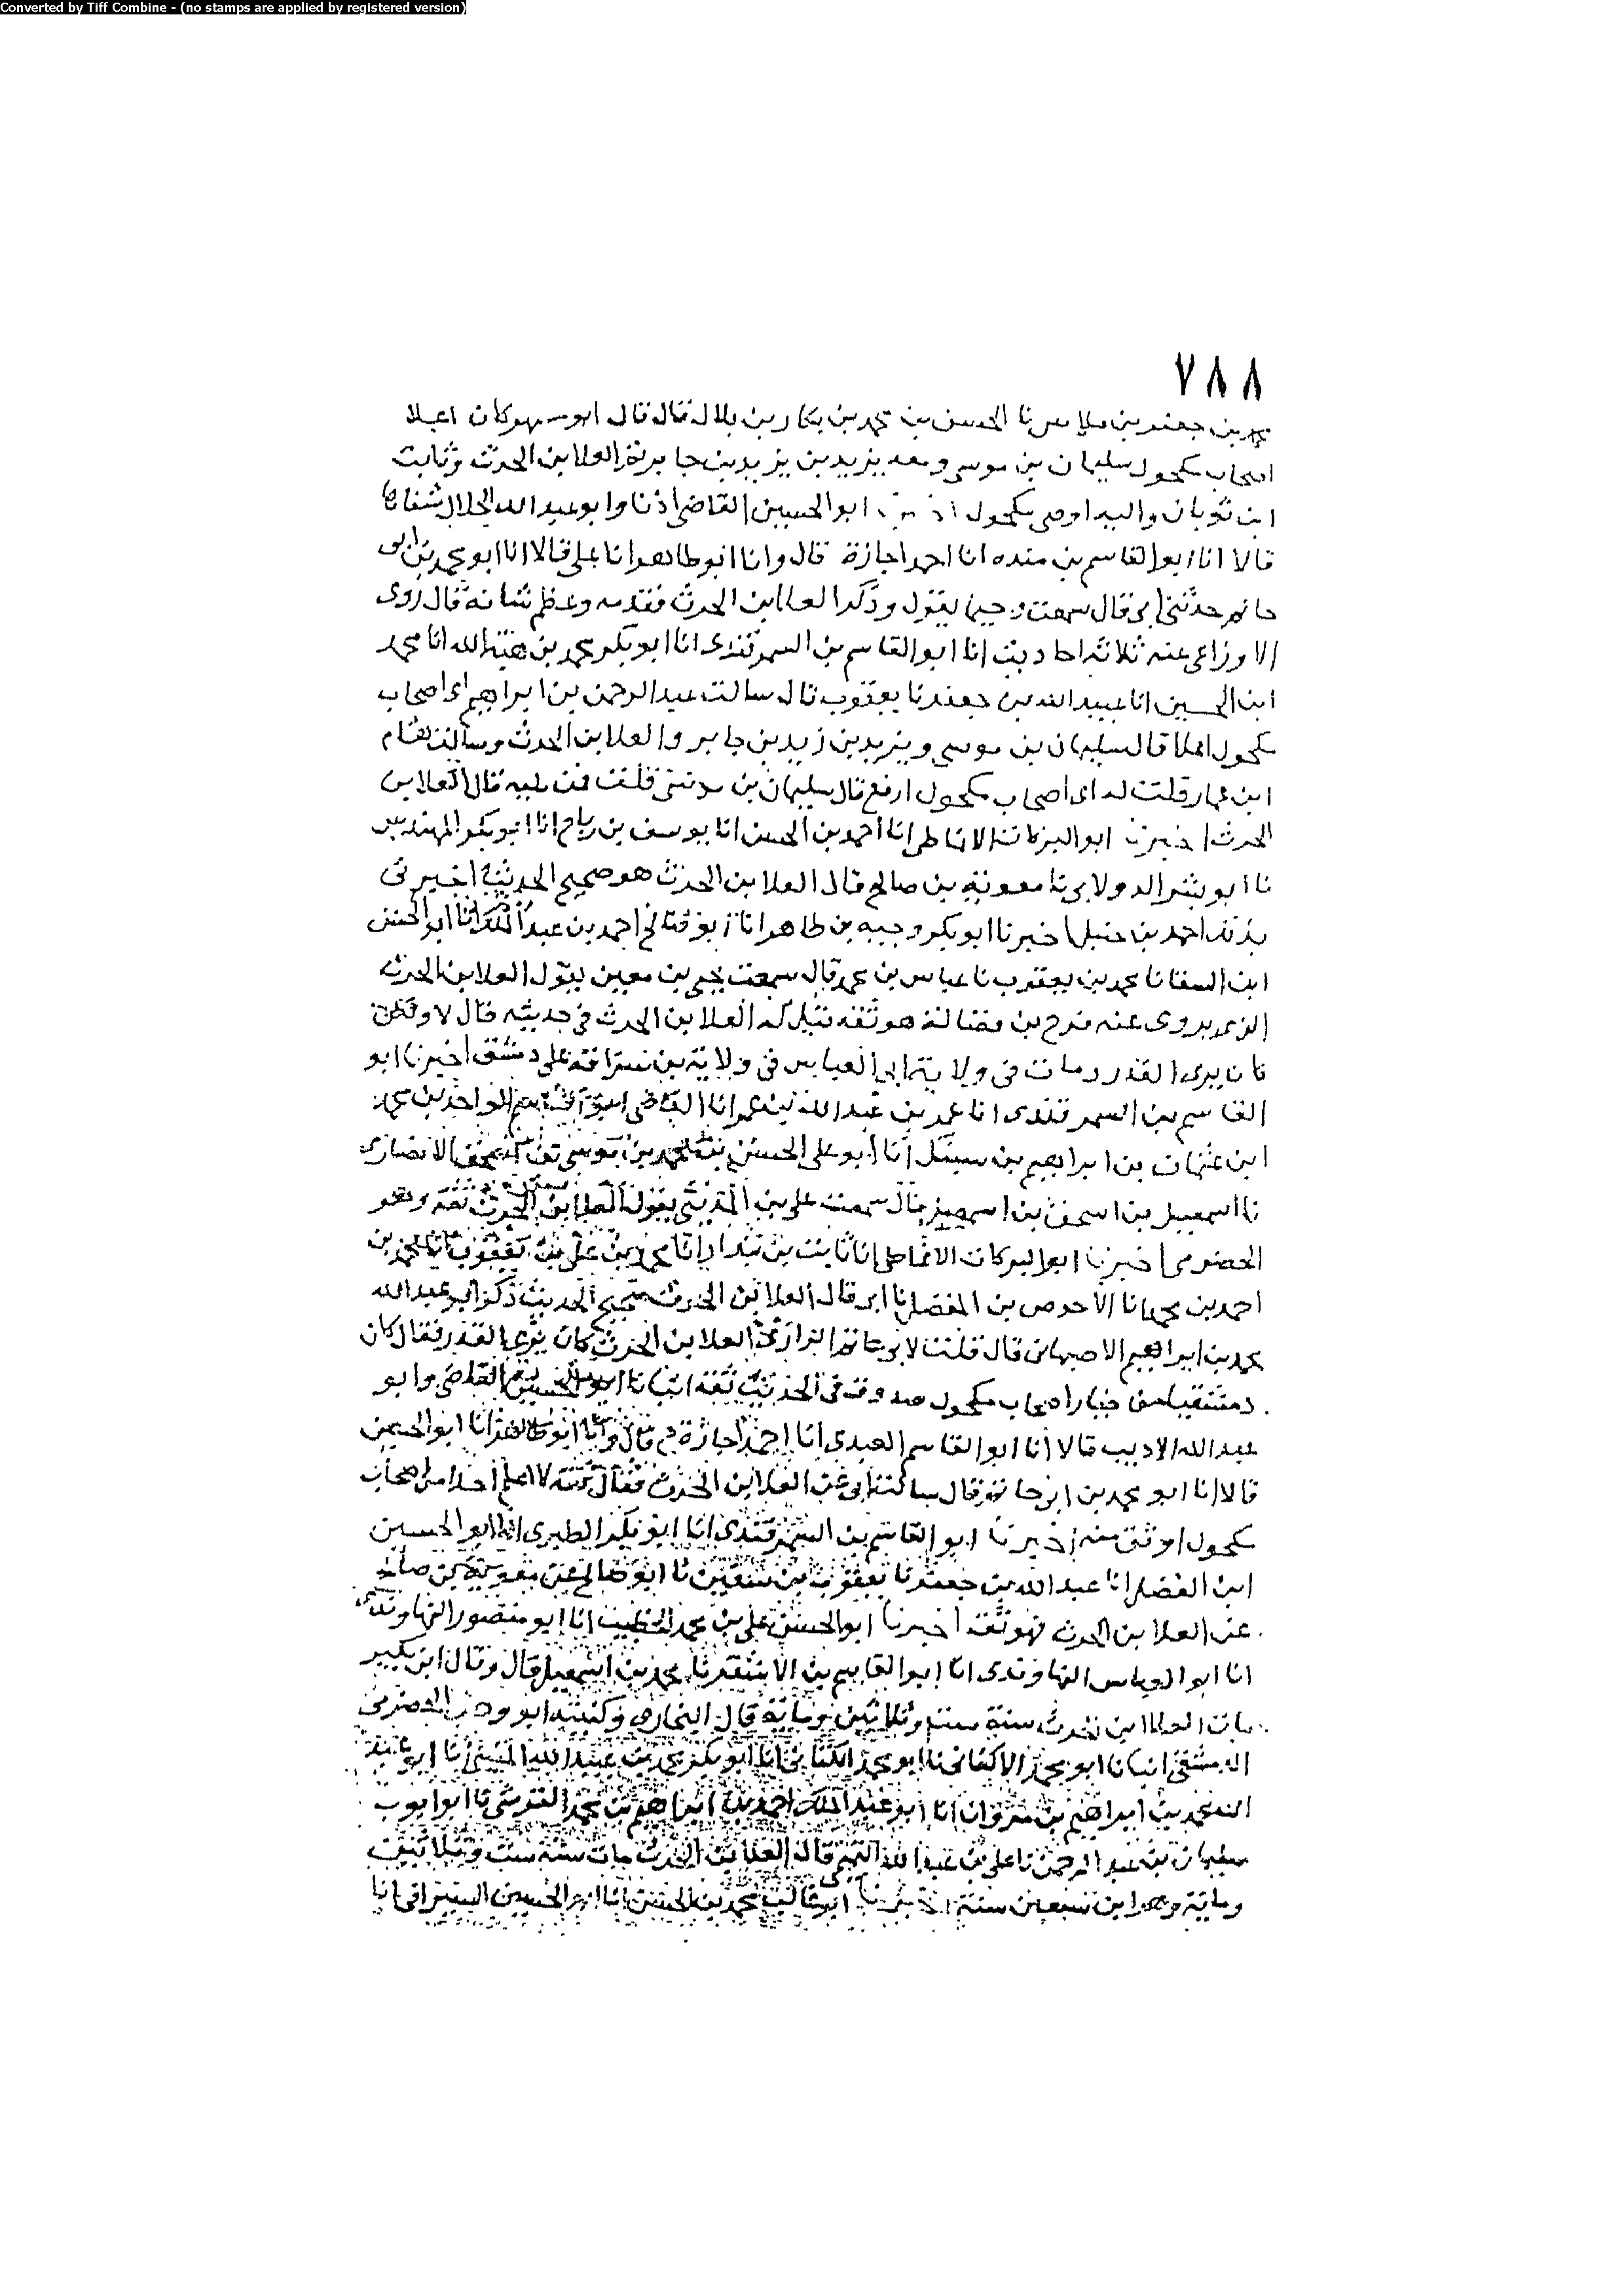 Converted by Tiff Combine - (no stamps are applied by registered version)
٧٨٨
محمد بن جعفر بن ملاس نا الحسن بن محمد بن بكار بن بلال قال قال ابو مسهر كان اعلا
اصحاب مكحول سليمان بن موسى ومعه يزيد بن يزيد بن جابر ثم العلا بن الحرث وثابت
ابن ثوبان واليه اوصى مكحول اخبرنا ابو الحسين القاضي اذنا وابو عبد الله الخلال شفاها
قالا انا ابو القاسم بن منده انا احمد اجازة قال وانا ابو طاهر انا علي قالا انا ابو محمد بن ابي
حاتم حدثني ابي قال سمعت دحيما يقول وذكر العلا بن الحرث فقدمه وعظم شانه قال روى
الاوزاعي عنه ثلاثة احاديث انا ابو القاسم بن السمرقندي انا ابو بكر محمد بن هبة الله انا محمد
ابن الحسين انا عبد الله بن جعفر نا يعقوب قال سالت عبد الرحمن بن ابراهيم اي اصحاب
مكحول اعلا قال سليمان بن موسى ويزيد بن يزيد بن جابر والعلا بن الحرث وسالت هشام
ابن عمار قلت له اي اصحاب مكحول ارفع قال سليمان بن موسى قلت فمن يليه قال العلا بن
الحرث اخبرنا ابو البركات الانماطي انا احمد بن الحسن انا يوسف بن رباح انا ابو بكر المهندس
نا ابو بشر الدولابي نا معوية بن صالح قال العلا بن الحرث هو صحيح الحديث اخبرني
بذلك احمد بن حنبل اخبرنا ابو بكر وجيه بن طاهر انا ابو صالح احمد بن عبد الملك انا ابو الحسن
ابن السقا نا محمد بن يعقوب نا عباس بن محمد قال سمعت يحيى بن معين يقول العلا بن الحرث
الذي يروى عنه فرج بن فضالة هو ثقه قيل له العلا بن الحرث في حديثه قال لا ولكن
كان يرى القدر ومات في ولاية ابي العباس في ولاية بن سراقة على دمشق اخبرنا ابو
القاسم بن السمرقندي انا عمر بن عبد الله بن عمر انا القاضي عبد الواحد بن محمد
ابن عثمان بن ابراهيم بن سبنك انا ابو علي الحسن بن محمد بن موسى بن اسحق الانصاري
نا اسمعيل بن اسحق بن اسمعيل قال سمعت علي بن المديني يقول العلا بن الحرث ثقة وهو
الحضرمي اخبرنا ابو البركات الانماطي انا ثابت بن بندار انا محمد بن علي بن يعقوب نا محمد بن
احمد بن محمد انا الاحوص بن المفضل نا ابي قال العلا بن الحرث صحيح الحديث ذكر ابو عبد الله
محمد بن ابراهيم الاصبهاني قال قلت لابي حاتم الرازي العلا بن الحرث كان يرى القدر فقال كان
دمشقيا من خيار اصحاب مكحول صدوق في الحديث ثقة انبانا ابو الحسين القاضي وابو
عبد الله الاديب قالا انا ابو القاسم العبدي انا احمد اجازة ح قال وانا ابو طاهر انا ابو الحسن
قالا انا ابو محمد بن ابي حاتم قال سالت ابي عن العلا بن الحرث فقال ثقة لا اعلم احدا من اصحاب
مكحول اوثق منه اخبرنا ابو القاسم بن السمرقندي انا ابو بكر الطبري انا ابو الحسين
ابن الفضل انا عبد الله بن جعفر نا يعقوب بن سفين نا ابو صالح عن معوية بن صالح
عن العلا بن الحرث وهو ثقة اخبرنا ابو الحسن علي بن محمد الخطيب انا ابو منصور النهاوندي
انا ابو العباس النهاوندي انا ابو القاسم بن الاشقر نا محمد بن اسمعيل قال وقال ابن بكير
مات العلا ابن الحرث سنة ست وثلاثين وماية قال البخاري وكنيته ابو وهب الحضرمي
الدمشقي انبانا ابو محمد الاكفاني نا ابو محمد الكتاني انا ابو بكر محمد بن عبيد الله
محمد بن ابراهيم بن مروان انا ابو عبد الملك احمد بن ابراهيم بن محمد القرشي نا ابو ايوب
سليمان بن عبد الرحمن نا علي بن عبد الله التميمي قال العلا بن الحرث مات سنة ست وثلاثين
وماية وهو ابن سبعين سنة اخبرنا ابو غالب محمد بن الحسن انا ابو الحسين السيرافي انا